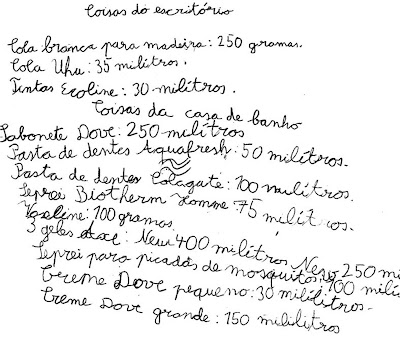 Coisas do escritório
Cola branca para madeira: 250 gramas.
Cola Uhu: 35 milítros.
Tintas Ecoline: 30 milítros.
Coisas da casa de banho
Sabonete Dove: 250 milítros
Pasta de dentes Aquafresh: 50 milítros.
Pasta de dentes Colagate: 100 milítros.
Seprei Biotherm Homme 75 milítros.
Vaseline: 100 gramos.
3 geles Axe: New 400 milítros New 250 mi
Seprei para picadas de mosquitos: 100 mili
Cereme Dove pequeno: 30 milílitros.
Creme Dove grande: 150 milílitros